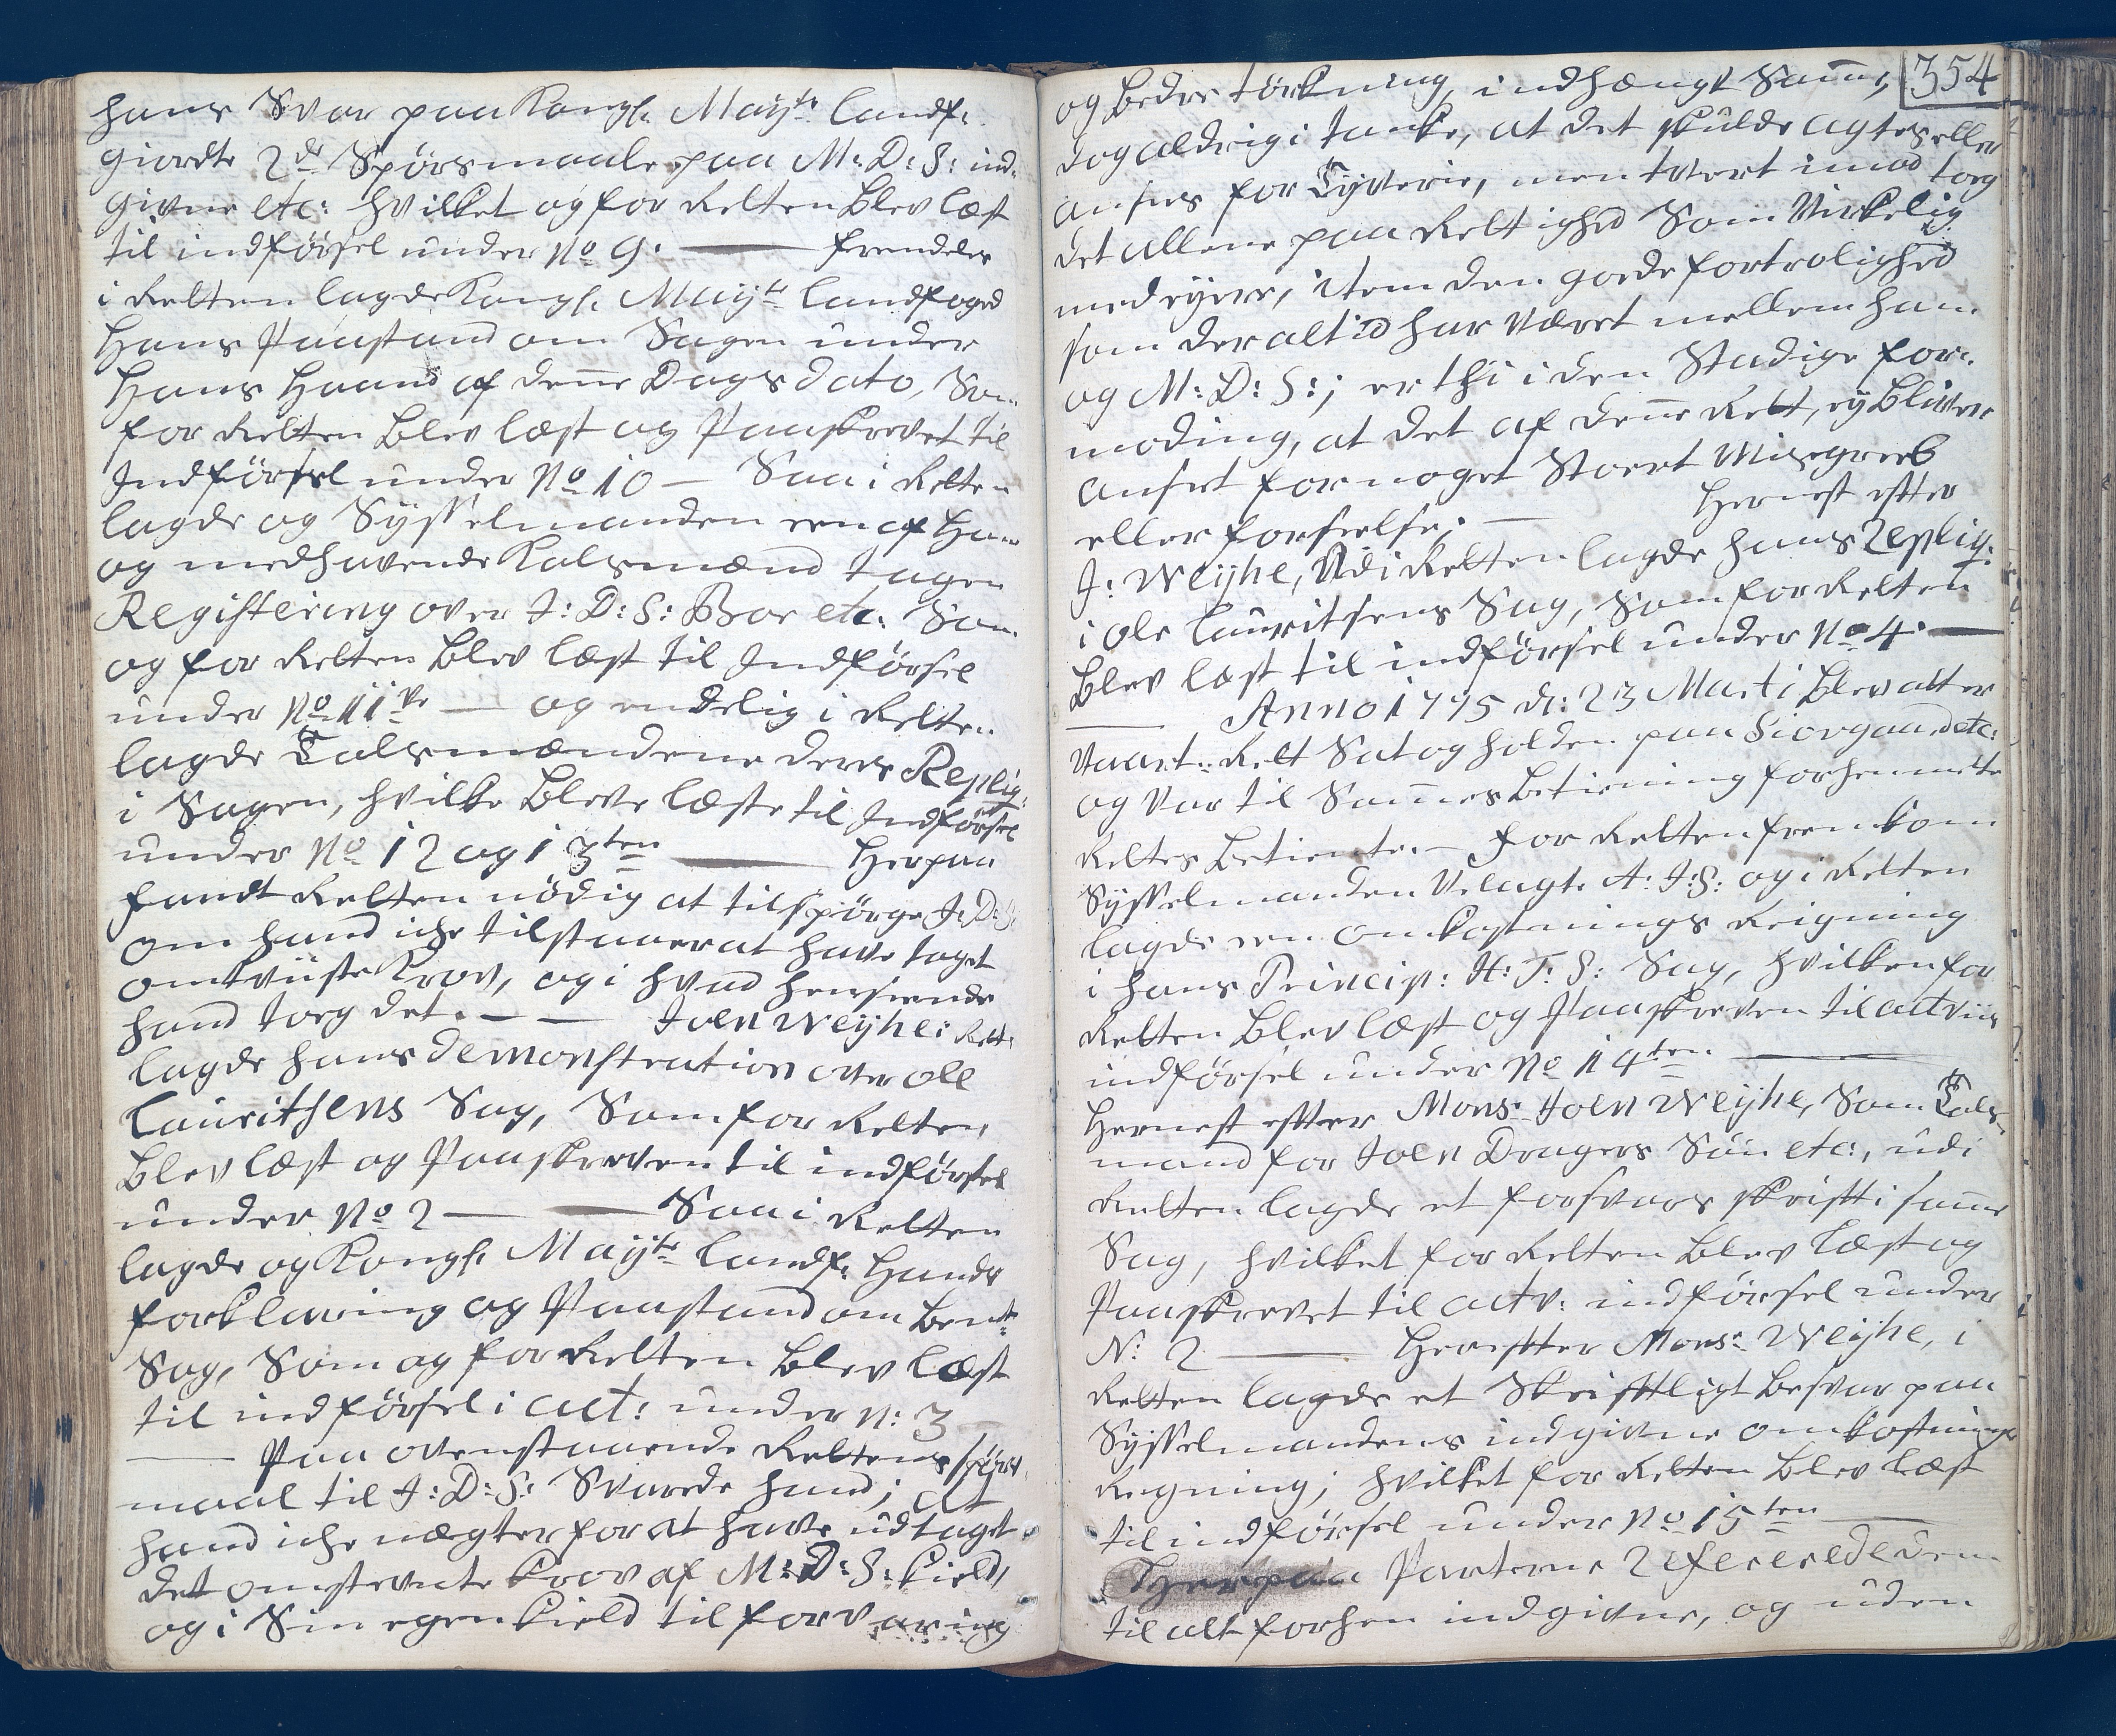 hans Svar paa Kongl. Mayts Landf:
giordte 2de Spörsmaale paa M: D: S: ind-
givne etc: hvilket og for Retten Blev læst
til indförsel under No 9. — fremdeles
i Retten lagde Kongl. Mayts Landfoged
Hans Paastand om Sagen under
Hans Haand af denne Dags dato, Som
for Retten Blev læst og Paaskrevet til
Indförsel under No 10 — Saa i Retten
lagde og Sysselmanden een af Ham
og medhavende Kalsmænd tagen
Registering over J: D: S: Boe etc. Som
og for Retten Blev læst til Indförsel
under No 11te — og endelig i Retten
lagde Talsmændene deres Repliq:
i Sagen, hvilke Bleve læste til Indförsel
under No 12 og 13ten — Herpaa
fandt Retten nödig at tilspörge J: D: S:
om hand iche tilstaaer at have taget
omtviiste Krov, og i hvad hensiende
hand tog det. — Joen Weyhe i Rett:
lagde hans demonstration over Oll
Lauritsens Sag, Som for Retten
Blev læst og Paaskreven til indförsel
under No 2 — Saa i Retten
lagde og Kongl. Mayts Landf: Hands
forklaring og Paastand om bemte
Sag, Som og for Retten Blev læst
til indförsel i act: under N: 3
— Paa ovenstaaende Rettens spörs-
maal til J: D: S: Svarede hand; at
hand iche nægter for at have udtaget
det omstevnte Krov af M: D: S: Kield,
og i Sin egen Kield til forvaring
354
og bedre törkning, indhængt Samme,
dog aldrig i tanke, at det skulde agtes eller
ansees for Tyverie, men tvert imod tog
det allene paa Rettighed Som Virkelig
medeyere, item den goede fortrolighed
som der altid har Været mellem ham
og M: D: S:; er thi i den Stadige for-
moding, at det af denne Rett, ey bliver
anseet for noget Stoert Misgreeb
eller forseelse. — Hernest efter
J: Weyhe, Udi Retten lagde hans Repliq:
i Ole Lauritsens Sag, Som for Retten
Blev læst til indförsel under No 4. —
— Anno 1775 d: 23 Marti Blev atter
Vaart: Rett Sat og holden paa Siovgaard etc:
og Var til Sammes Betiening forhenmelte
Rettes Betiente. — For Retten fremkom
Sysselmanden Velagte A: J: S: og i Retten
lagde een omkostnings Reigning
i hans Princip: H: T: S: Sag, hvilken for
Retten Blev læst og Paaskreven til act Viis
indförsel under No 14ten —
Hernest efter Monsr Joen Weyhe, Som Tals-
mand for Joen Dragers Sön etc:, udi
Retten lagde et forsvars skrift i samme
Sag, hvilket for Retten Blev læst og
Paaskrevet til actv: indförsel under
N: 2 — Herefter Monsr Weyhe, i
Retten lagde et Skriftligt besvar paa
Sysselmandens indgivne omkostnings
Regning; hvilket for Retten Blev læst
til indförsel under No 15ten —
Herpaa Parterne refererede dem
til alt forhen indgivne, og uden